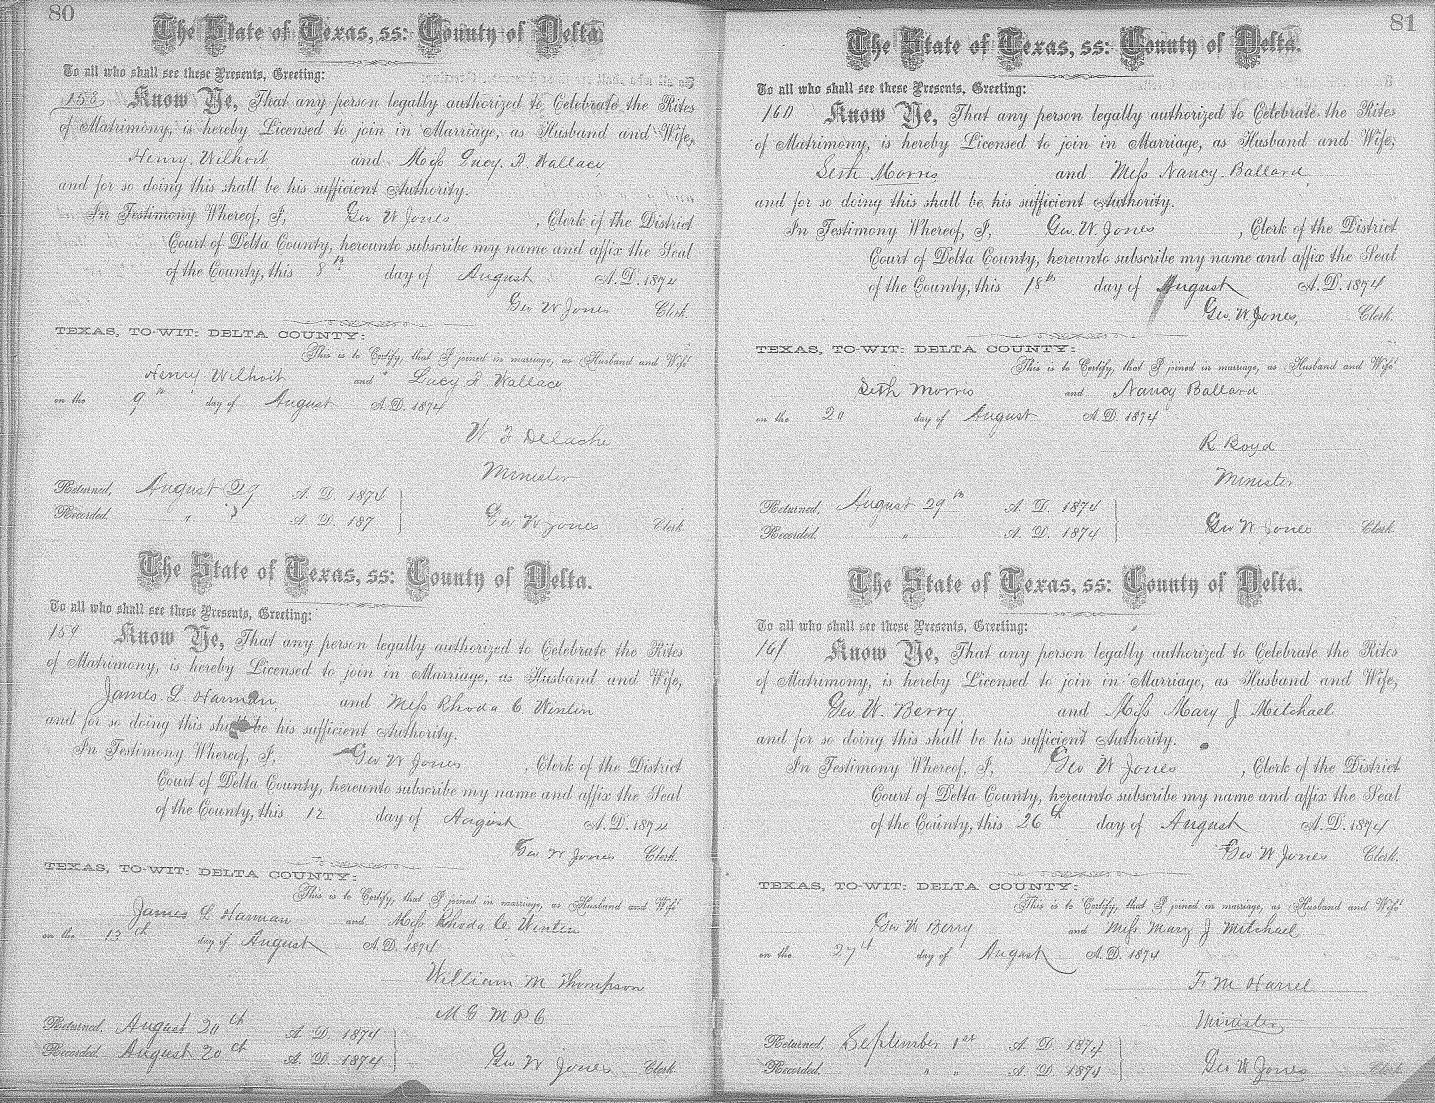 80
The State of Texas, ss: County of Delta.
To all who shall see these Presents, Greeting:
158 Know Ye, That any person legally authorized to Celebrate the Rites
of Matrimony, is hereby Licensed to join in Marriage, as Husband and Wife,
Henry Wilhoit and Miss Lucy. A. Wallace,
and for so doing this shall be his sufficient Authority.
In Testimony Whereof, I, Geo W Jones, Clerk of the District
Court of Delta County, hereunto subscribe my name and affix the Seal
of the County, this 8th day of August A. D. 1874
Geo W Jones Clerk.
TEXAS, TO-WIT: DELTA COUNTY:
This is to Certify, that I joined in marriage, as Husband and Wife
Henry Wilhoit and Lucy A Wallace
on the 9th day of August A. D. 1874
Minister
Returned, August 29 A. D. 1874
Recorded. " " A. D. 187
Geo W Jones Clerk
The State of Texas, ss: County of Delta.
To all who shall see these Presents, Greeting:
159 Know Ye, That any person legally authorized to Celebrate the Rites
of Matrimony, is hereby Licensed to join in Marriage, as Husband and Wife,
James L Harman, and Miss Rhoda C Winten
and for so doing this shall be his sufficient Authority.
In Testimony Whereof, I, Geo W Jones, Clerk of the District
Court of Delta County, hereunto subscribe my name and affix the Seal
of the County, this 12 day of August A. D. 1874
Geo W Jones Clerk.
TEXAS, TO-WIT: DELTA COUNTY:
This is to Certify, that I joined in marriage, as Husband and Wife
James L Harman and Miss Rhoda C. Winten
on the 13th day of August A. D. 1874
William M Thompson
M G M P C
Returned, August 20th A. D. 1874
Recorded. August 20th A. D. 1874
Geo W Jones Clerk
81
The State of Texas, ss: County of Delta.
To all who shall see these Presents, Greeting:
160 Know Ye, That any person legally authorized to Celebrate the Rites
of Matrimony, is hereby Licensed to join in Marriage, as Husband and Wife,
Seth Morris and Miss Nancy Ballard
and for so doing this shall be his sufficient Authority.
In Testimony Whereof, I, Geo. W Jones, Clerk of the District
Court of Delta County, hereunto subscribe my name and affix the Seal
of the County, this 18th day of August A. D. 1874
Geo. W Jones, Clerk.
TEXAS, TO-WIT: DELTA COUNTY:
This is to Certify, that I joined in marriage, as Husband and Wife
Seth Morris and Nancy Ballard
on the 20 day of August A. D. 1874
R Boyd
Minister
Returned, August 29th A. D. 1874
Recorded. " A. D. 1874
Geo W Jones Clerk.
The State of Texas, ss: County of Delta.
To all who shall see these Presents, Greeting:
161 Know Ye, That any person legally authorized to Celebrate the Rites
of Matrimony, is hereby Licensed to join in Marriage, as Husband and Wife,
Geo. W. Berry, and Miss Mary J Mitchael
and for so doing this shall be his sufficient Authority.
In Testimony Whereof, I, Geo W Jones, Clerk of the District
Court of Delta County, hereunto subscribe my name and affix the Seal
of the County, this 26th day of August A. D. 1874
Geo W Jones Clerk.
TEXAS, TO-WIT: DELTA COUNTY:
This is to Certify, that I joined in marriage, as Husband and Wife
Geo W Berry and Miss Mary J Mitchael
on the 27th day of August A. D. 1874
F M Harrel
Minister
Returned, September 1st A. D. 1874
Recorded. " " A. D. 1874
Geo W Jones Clerk.